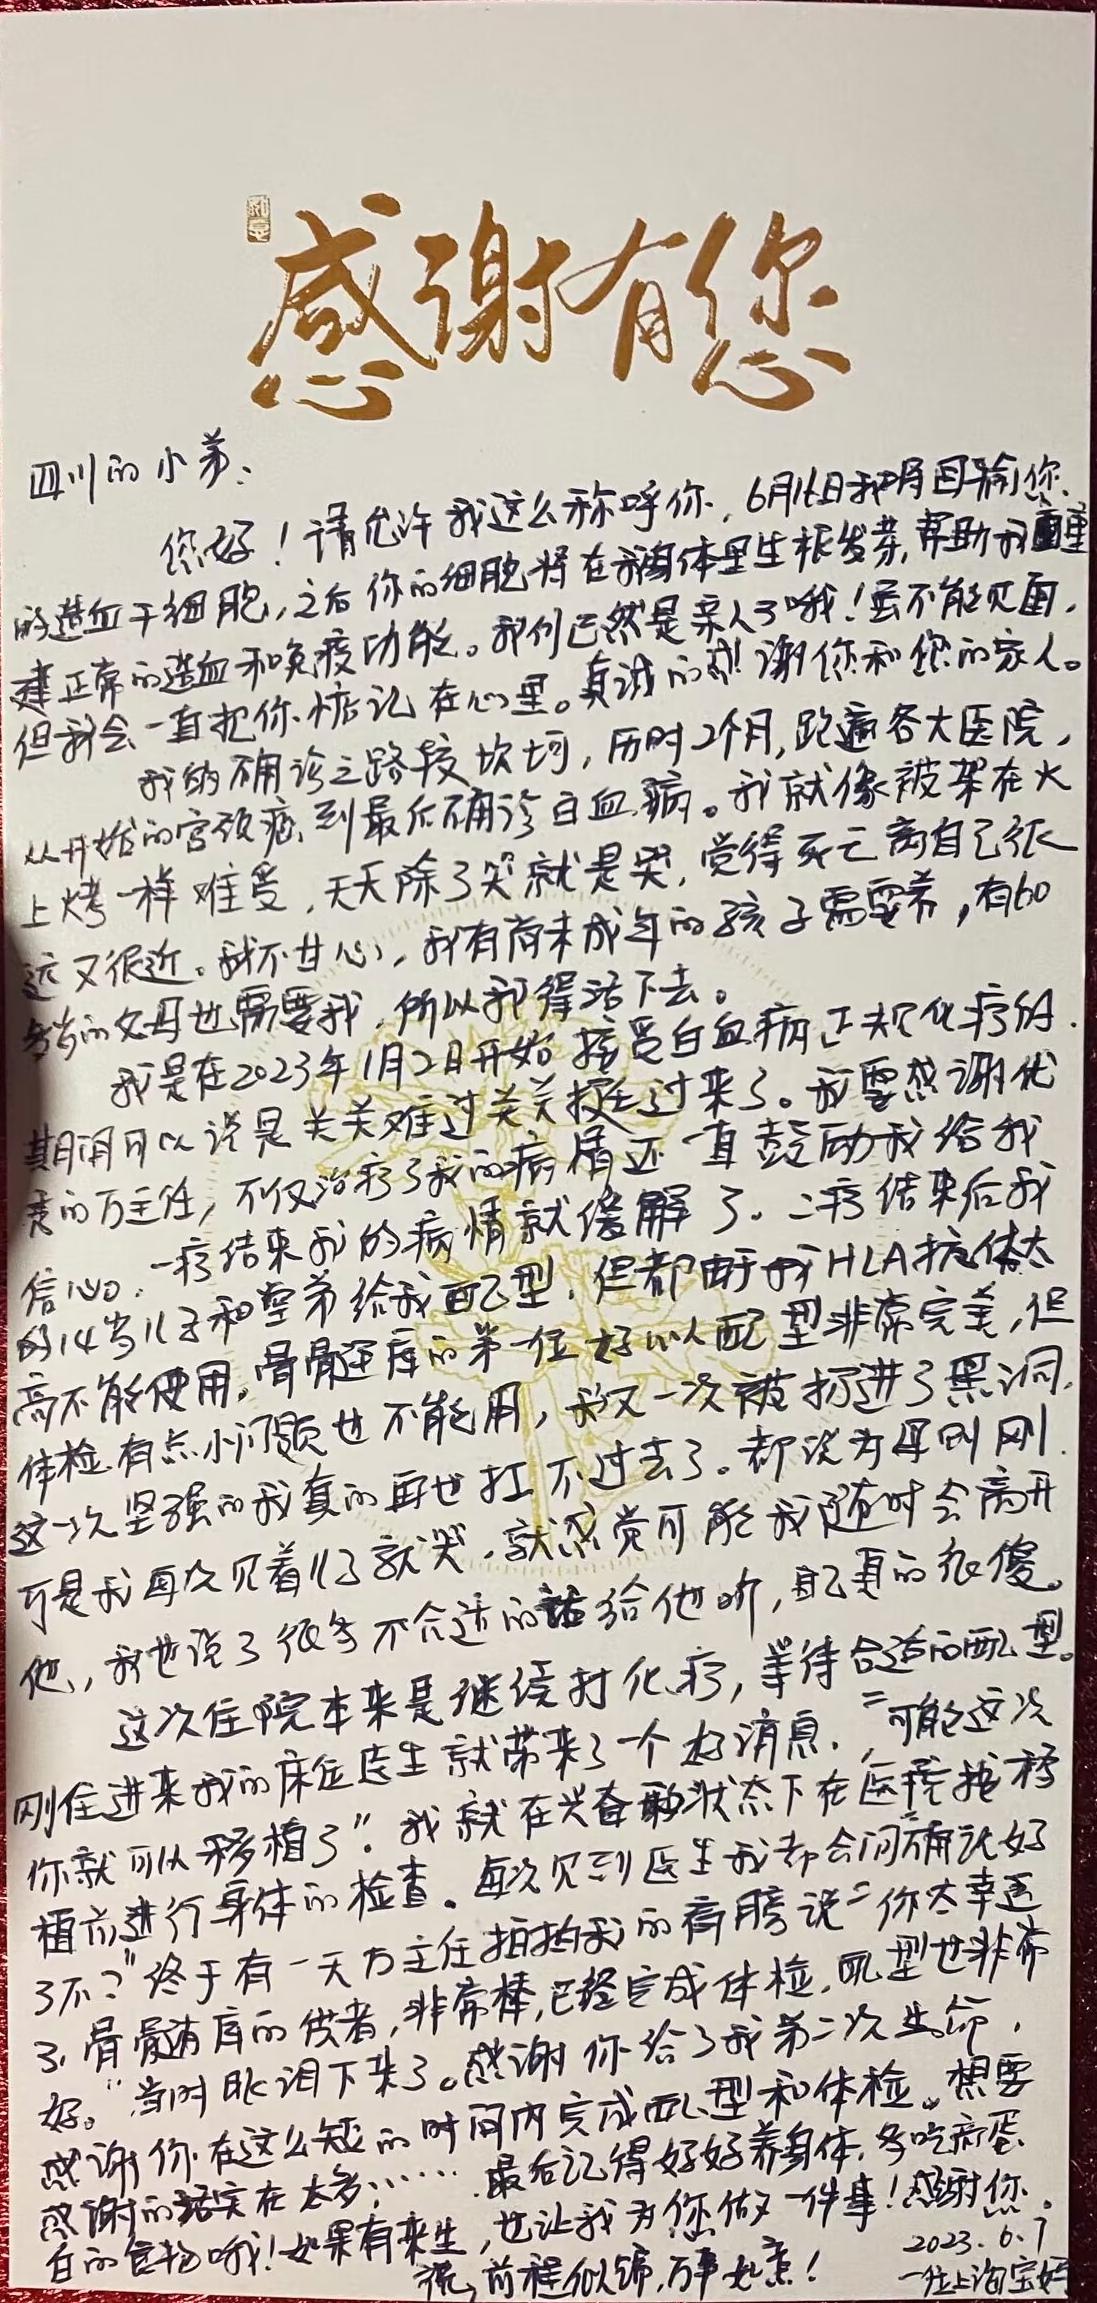 感谢有您
四川的小弟：
你好！请允许我这么称呼你，6月16日我将回输你
的造血干细胞，之后你的细胞将在我身体里生根发芽，帮助我重
建正常的造血和免疫功能。我们已然是亲人了哦！虽不能见面，
但我会一直把你惦记在心里。真诚的感谢你和您的家人。
我的确诊之路较坎坷，历时2个月，跑遍各大医院，
从开始的宫颈癌到最后确诊白血病。我就像被架在火
上烤一样难受，天天除了哭就是哭，觉得死亡离自己很
远又很近。我不甘心，我有尚未成年的孩子需要养，有60
多岁的父母也需要我，所以我得活下去。
我是在2023年1月2日开始接受白血病正规化疗的，
期间可以说是关关难过关关挺过来了。我要感谢优
秀的万主任，不仅治疗了我的病情还一直鼓励我给我
信心。一疗结束我的病情就缓解了。二疗结束后我
的14岁儿子和堂弟给我配型，但都由于我HLA抗体太
高不能使用。骨髓库的第一位好心人配型非常完美，但
体检有点小问题也不能用，我又一次被扔进了黑洞，
这一次坚强的我真的再也扛不过去了。都说为母则刚
可是我每次见着儿子就哭，就感觉可能我随时会离开
他，我也说了很多不合适的话给他听，自己真的很傻。
这次住院本来是继续打化疗，等待合适的配型。
刚住进来我的床位医生就带来了一个好消息，“可能这次
你就可以移植了”。我就在兴奋状态下在医院按移
植前进行身体的检查。每次见到医生我都会问“确认好
了不？”终于有一天万主任拍拍我的肩膀说“你太幸运
了，骨髓库的供者，非常棒，已经完成体检，配型也非常
好。”当时眼泪下来了。感谢你给了我第二次生命，
感谢你在这么短的时间内完成配型和体检。想要
感谢的话实在太多……最后记得好好养身体，多吃高蛋
白的食物哦！如果有来生，也让我为您做一件事！感谢您。
祝，前程似锦，万事如意！
2023.6.7
一位上海宝妈